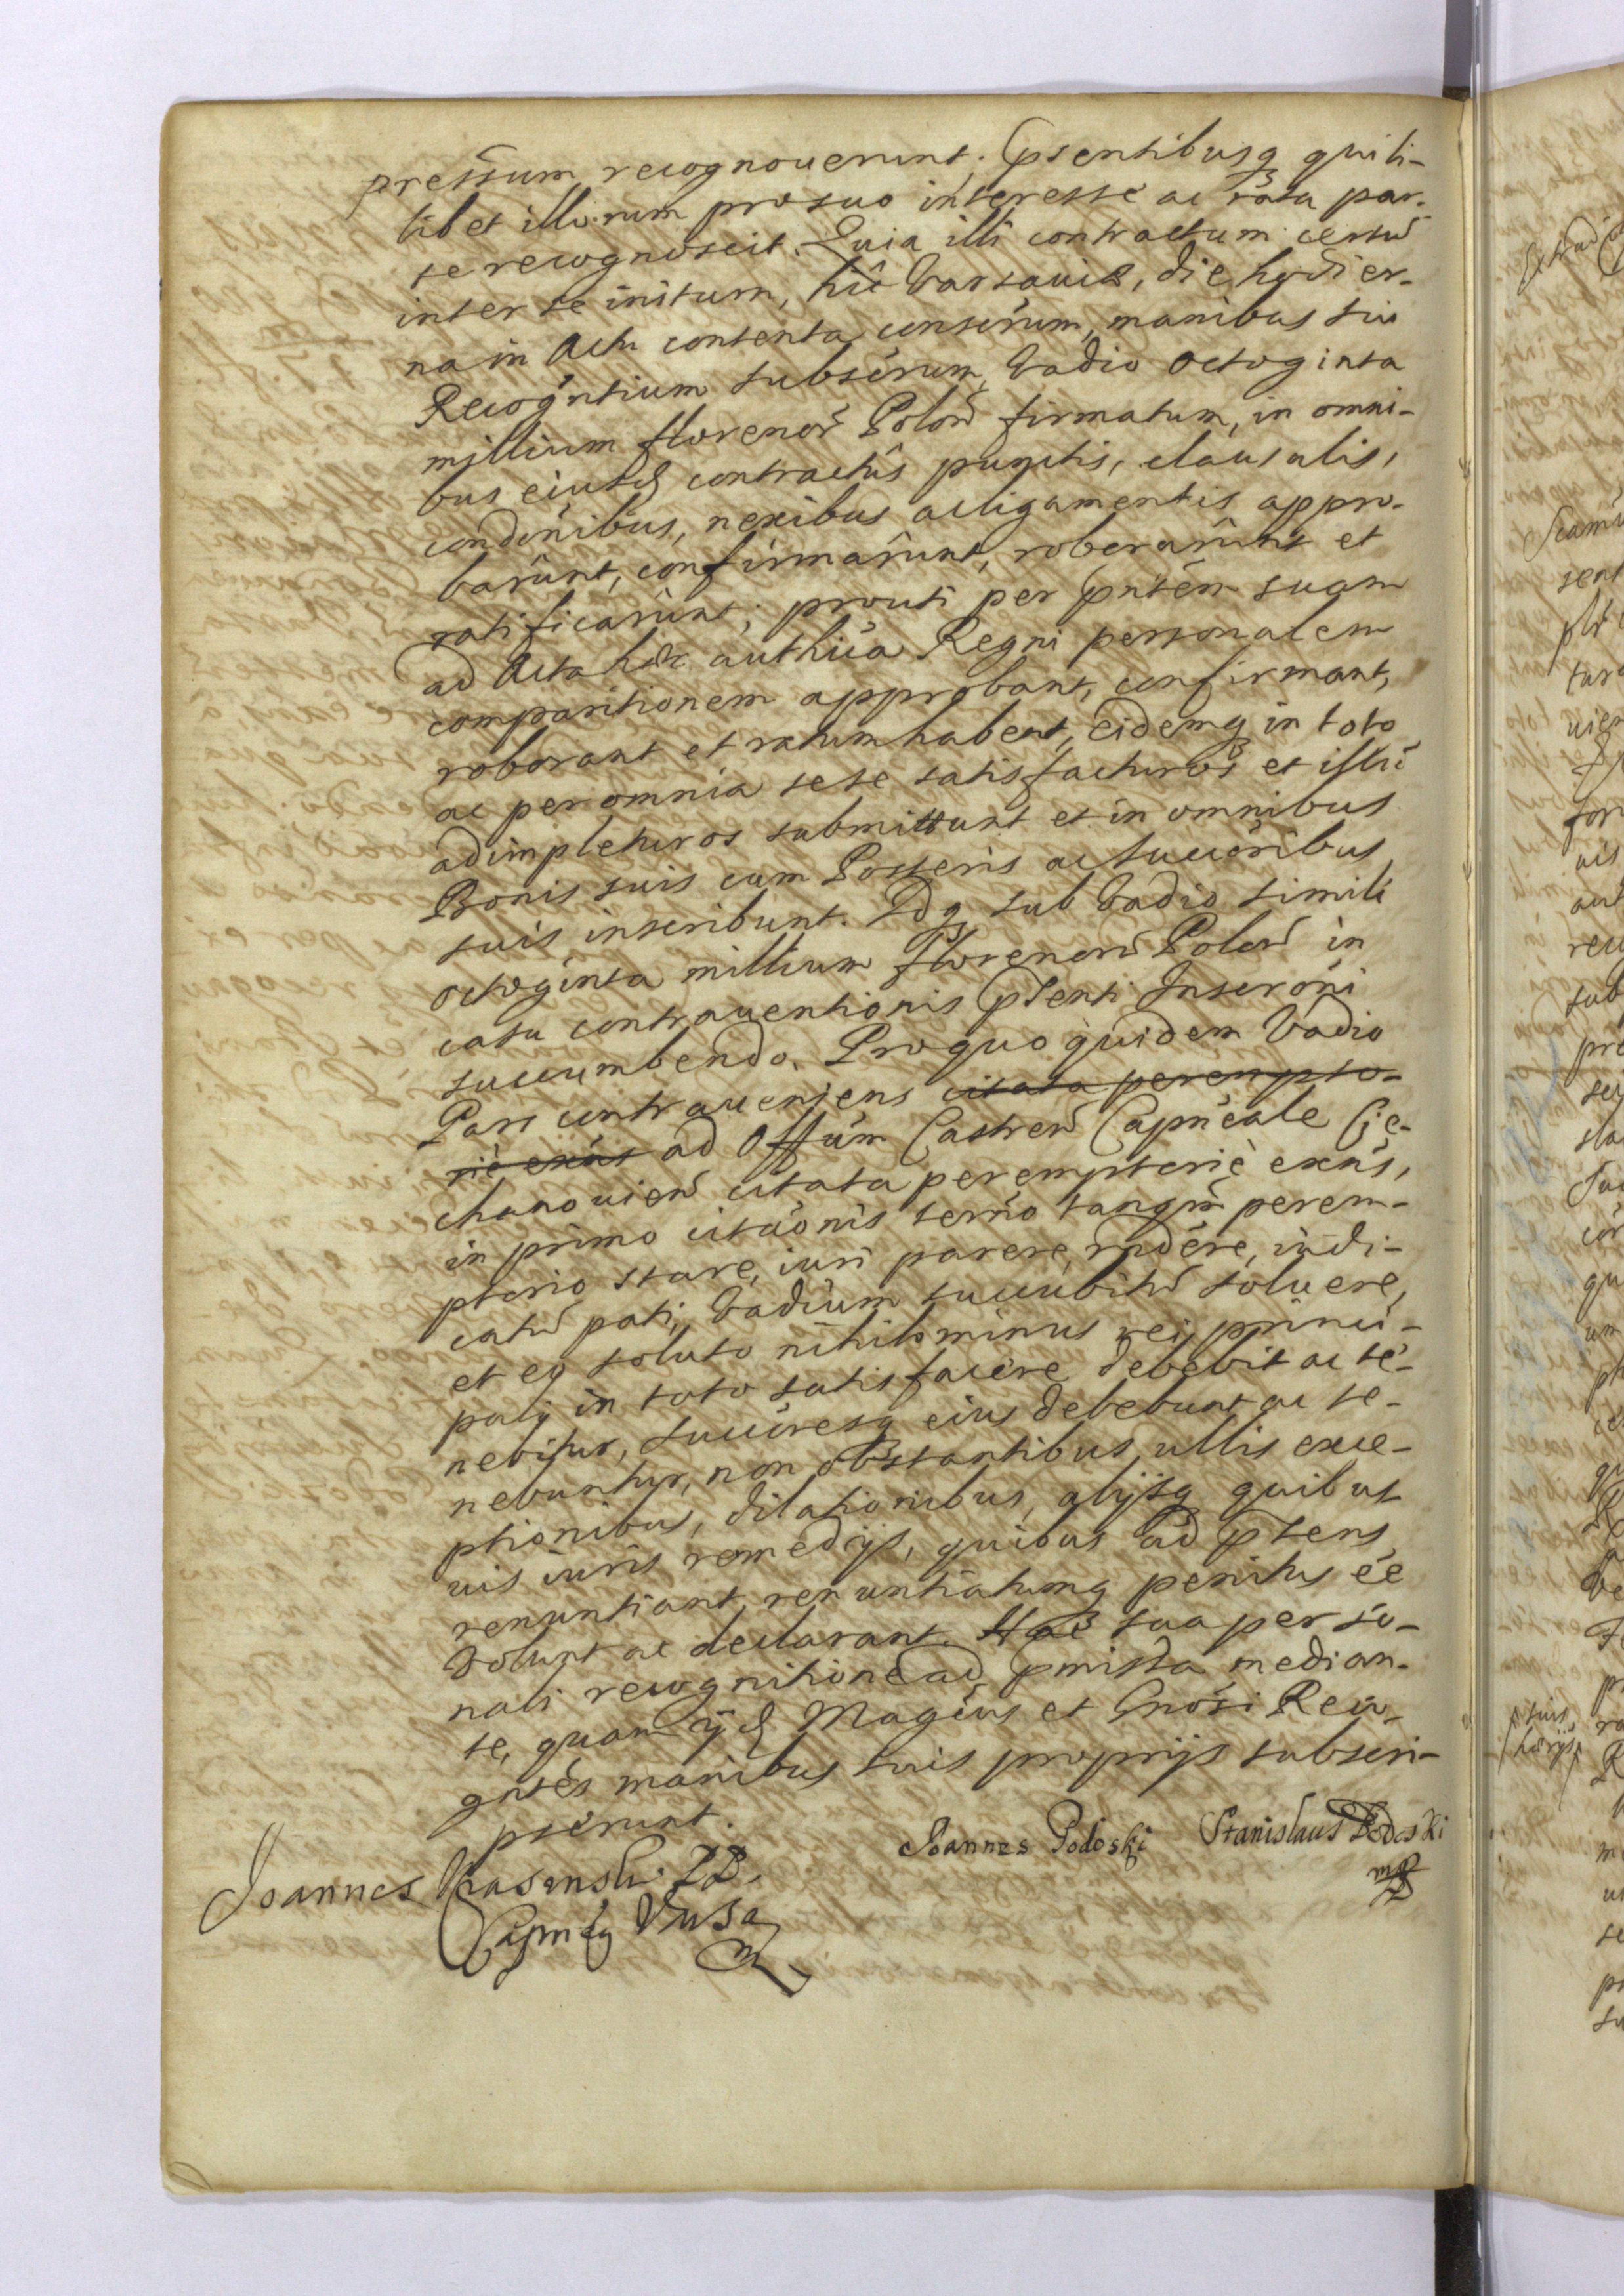 pressum recognouerunt. Psentibusq quili-
libet illorum pro suo interesse ac rata par-
te recognoscit. Quia illi contractum certu
inter se initum, hic Varsauiæ, die hodier-
na in Actu contenta conscrum, manibus sui
Recogntium subscrum, Vadio octoginta
millium florenor Polon firmatum, in omni-
bus eiusd contractus punctis, clausulis,
condonibus, nexibus ac ligamentis appro-
barunt, confirmarunt, roborarunt et
ratificarunt; prouti per pntem suam
ad Acta haec authica Regni personalem
comparitionem approbant, confirmant,
roborant et ratum habent, eidemq in toto
ac per omnia sese satisfacturos et illu
adimpleturos submittunt et in omnibus
Bonis suis cum Posteris ac succoribus
suis inscribunt. Idq sub Vadio simili
octoginta millium florenor Polon in
casu contrauentionis psenti Inscroni
succumbendo. Pro quo quidem Vadio
Pars contraueniens citata perempto-
rie exns ad Offum Castren Capneale Cie-
chanouien citata peremptorie exns,
in primo citaonis termo tanqm perem-
ptorio stare, iuri parere, rndere, iudi-
catu pati, Vadium succubitu soluere,
et eo soluto nihilominus rei princi-
pali in toto satisfacere debebit ac te-
nebitur, succoresq eius debebunt ac te-
nebuntur, non obstantibus ullis exce-
ptionibus, dilationibus, alijsq quibus
uis iuris remedijs, quibus ad psens
renuntiant, renuntiatumq penitus ee
Volunt ac declarant. Hac sua perso-
nali recognitione ad pmissa median-
te, quam ijd Magcus et Gnosi Reco-
gntes manibus suis proprijs subscri-
pserunt.
Joannes Podoski Stanislaus Podoski
mp
Joannes Krasinski